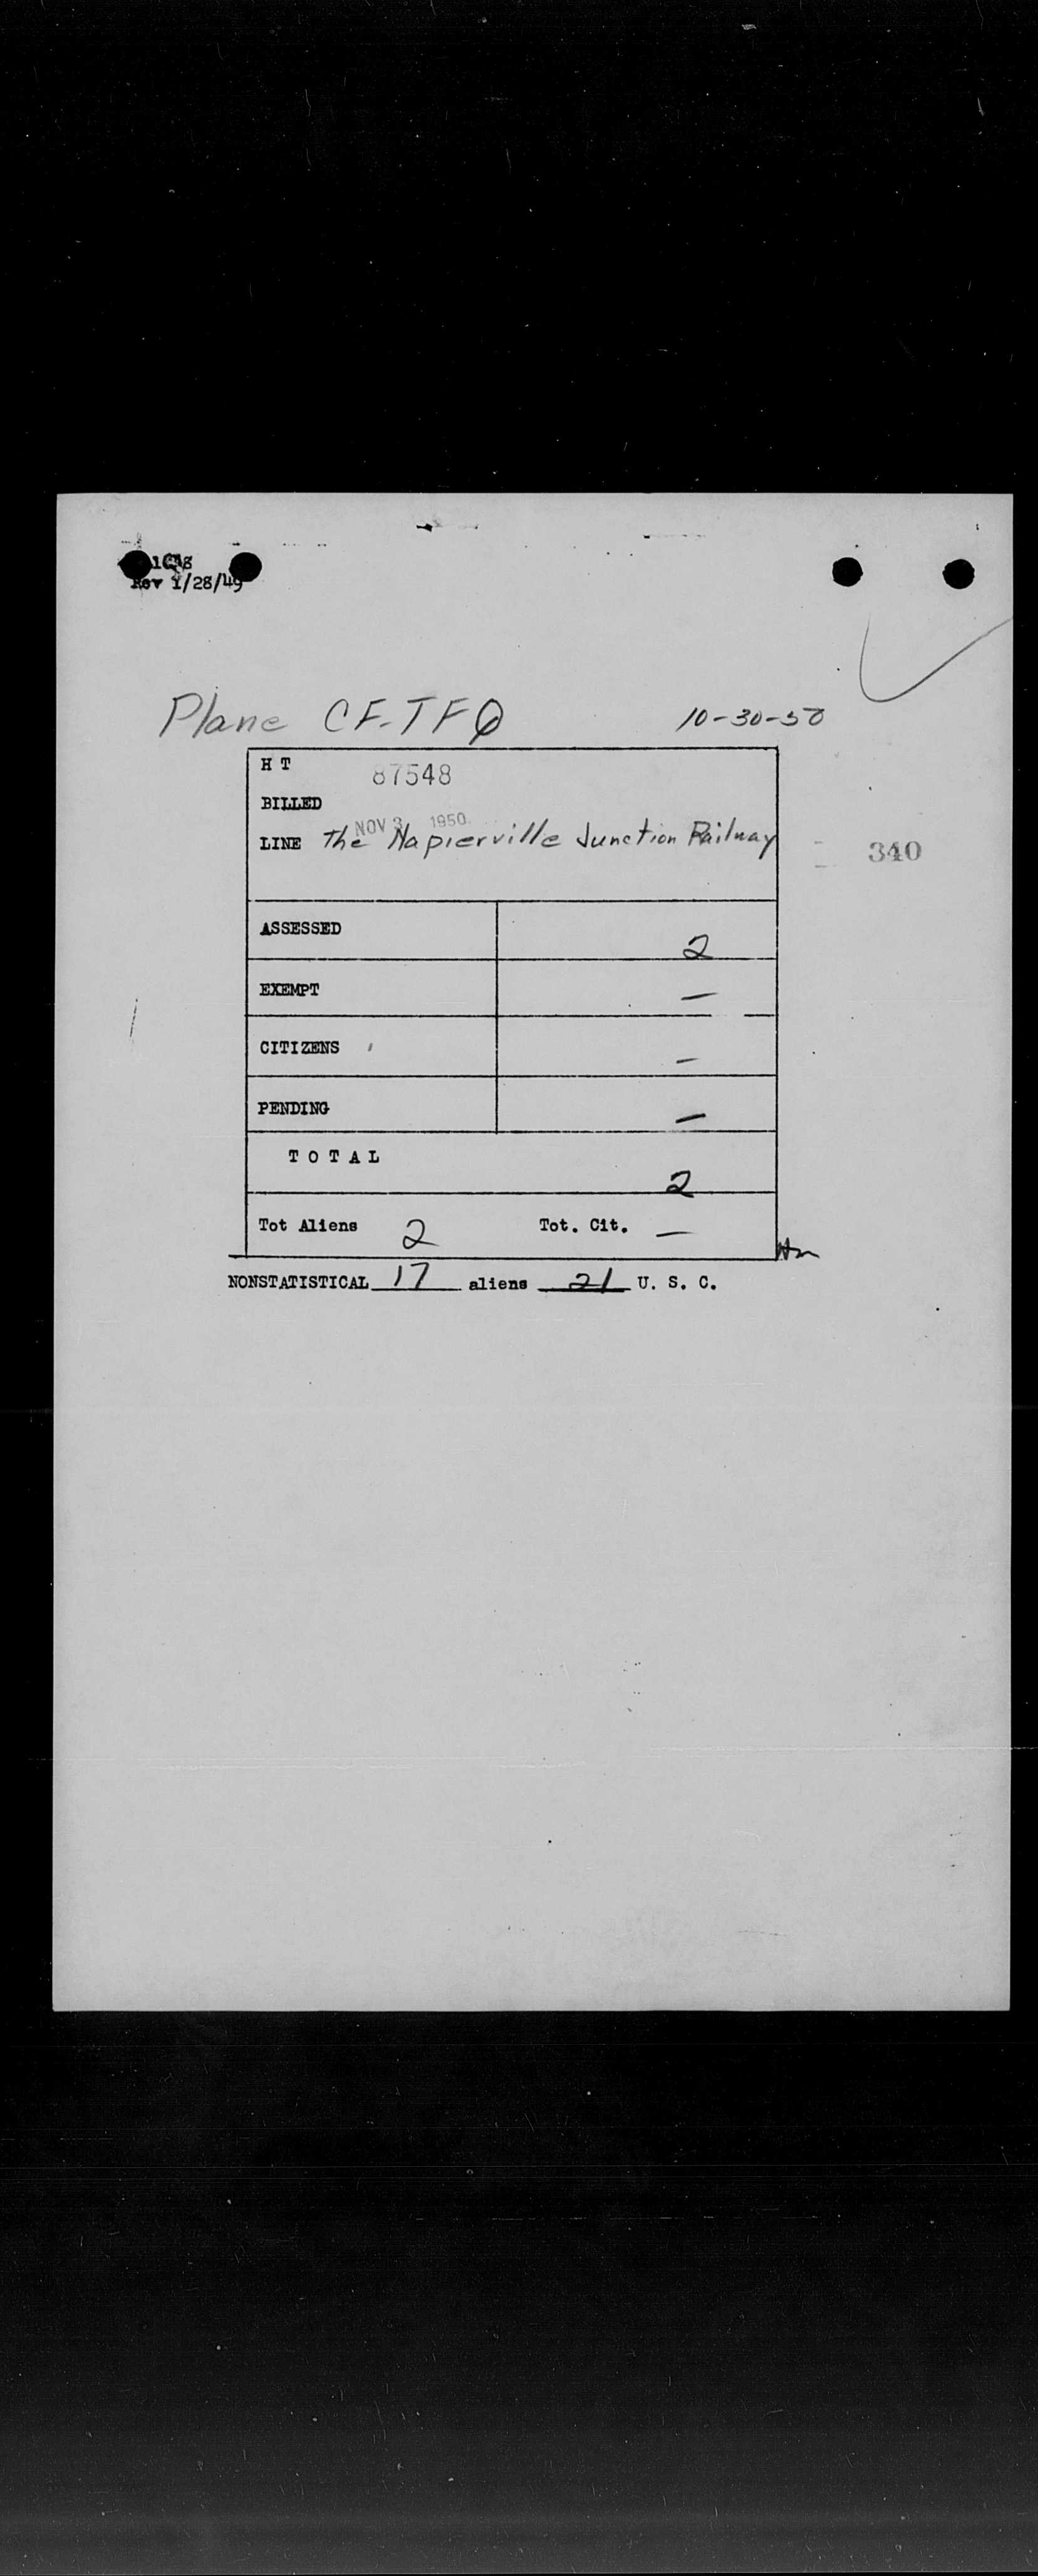 Rev 1/28/49
Plane CF-TFQ 10-30-50
H T 87548
BILLED
NOV 3 1950
LINE The Napierville Junction Railway
340
ASSESSED 2
EXEMPT —
CITIZENS —
PENDING —
TOTAL 2
Tot Aliens 2 Tot. Cit. —
NONSTATISTICAL 17 aliens 21 U. S. C.